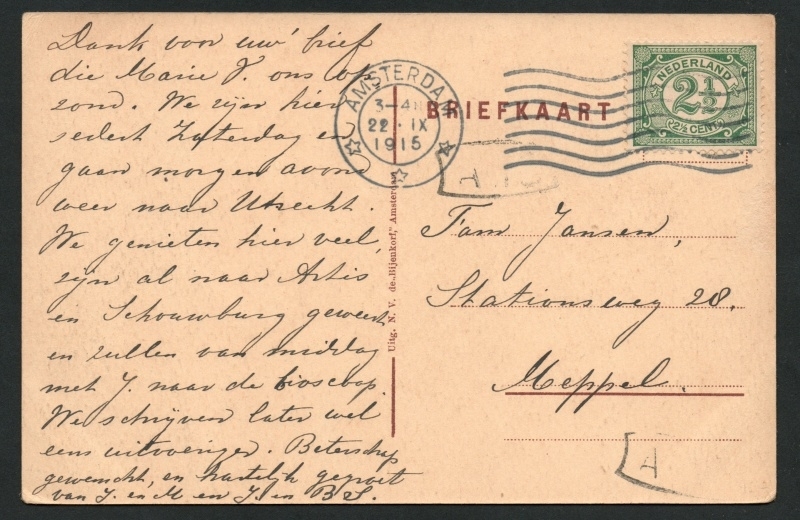 Dank voor uw' brief
die Marie V. ons op
zond. We zijn hier
sedert Zaterdag en
gaan morgen avond
weer naar Utrecht.
We genieten hier veel,
zijn al naar Artis
en Schouwburg geweest
en zullen van middag
met J. naar de bioscoop.
We schrijven later wel
eens uitvoeriger. Beterschap
gewenscht, en hartelijk gegroet
van J. en M en J. en B S.
Uitg. N. V. de „Bijenkorf," Amsterdam
AMSTERDAM
3-4
22 . IX
1915
BRIEFKAART
NEDERLAND
2½
(2½ CENT)
Fam Jansen,
Stationsweg 28.
Meppel.
A